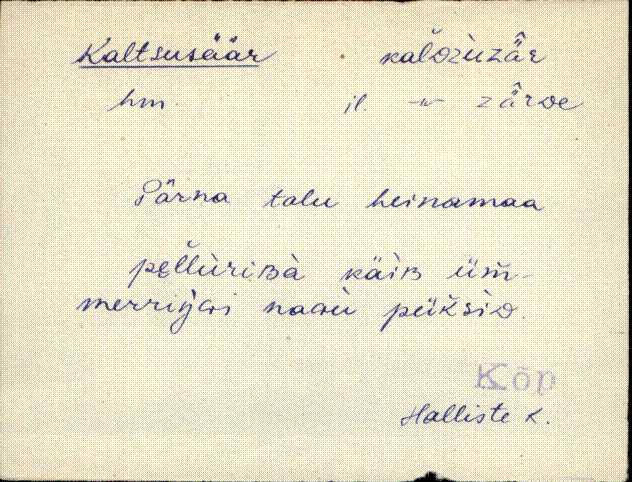 Kaltsusäär kal̆ᴅzùzär̂
hm. il. -"- zär̂ᴅe
Pärna talu heinamaa
pel̆lùriʙà käiʙ üm̆-
merriŋ̀ɢi naɢù pük̆sìᴅ.
Kõp
Halliste K.